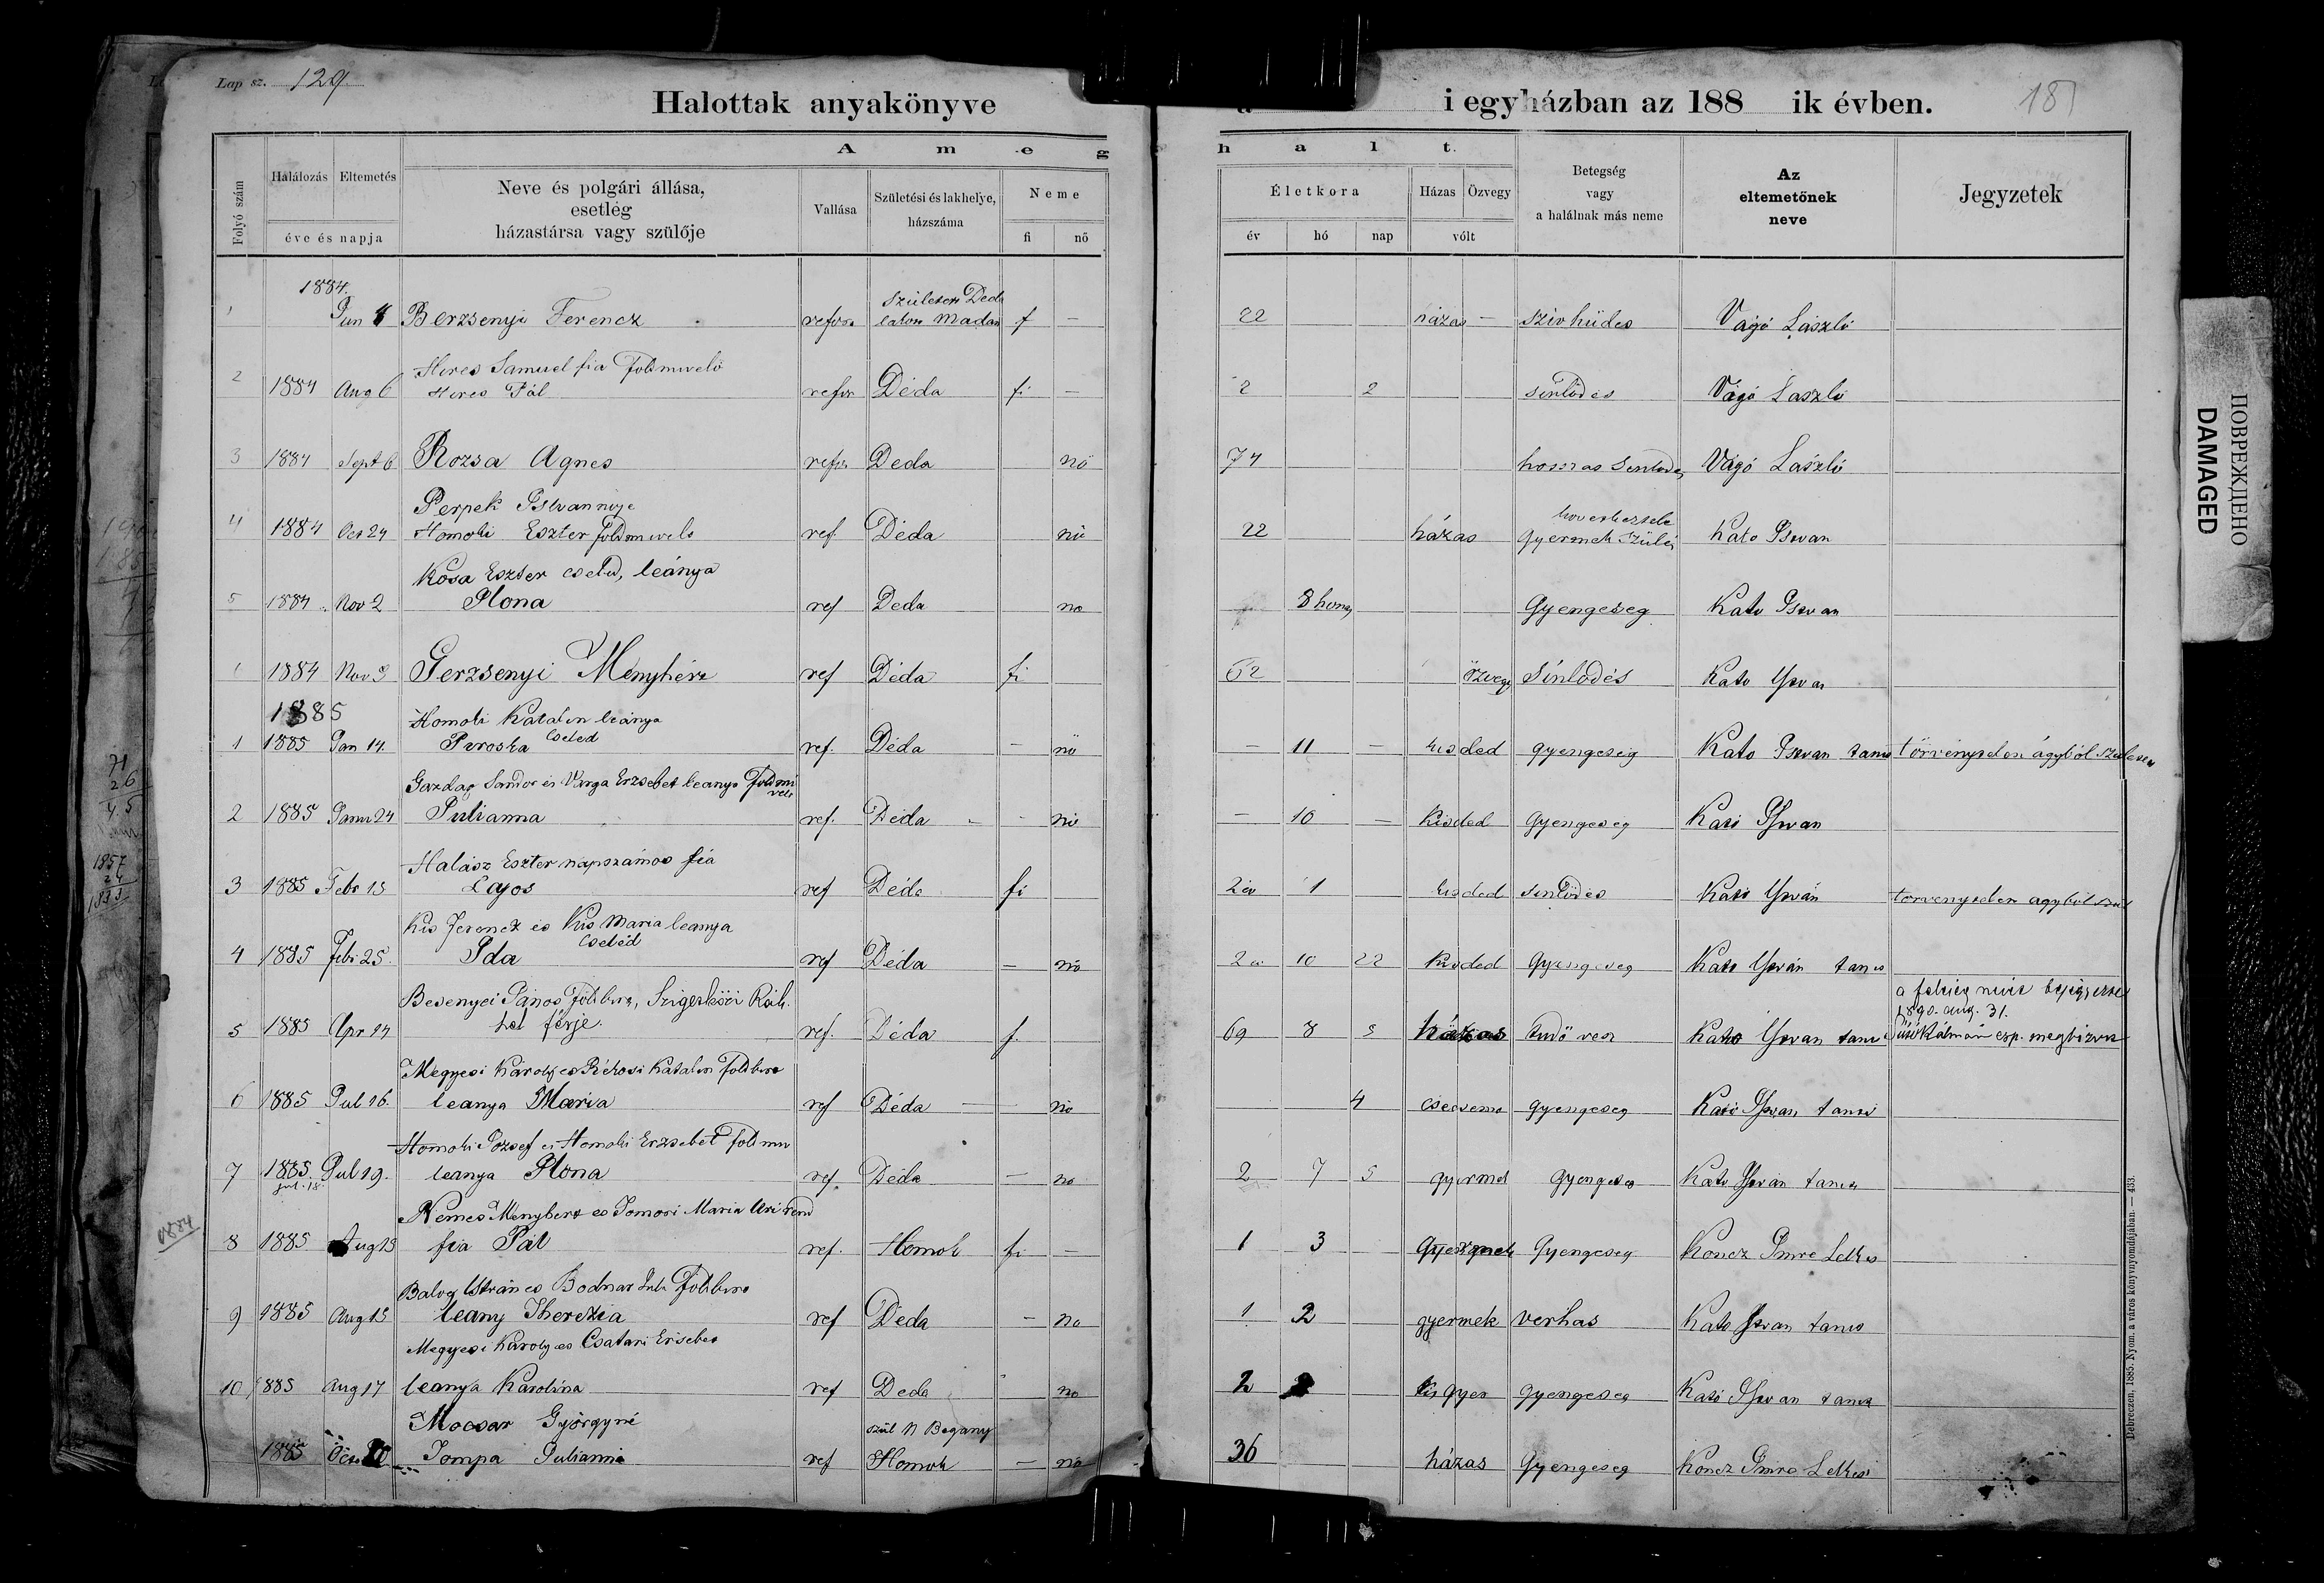 Lap sz. 129
Halottak anyakönyve
a i egyházban az 188 ik évben.
181
A m e g h a l t.
Folyó szám
Halálozás
Eltemetés
éve és napja
Neve és polgári állása,
esetleg
házastársa vagy szülője
Vallása
Születési és lakhelye,
házszáma
Neme
fi
nő
Életkora
év
hó
nap
Házas
Özvegy
vólt
Betegség
vagy
a halálnak más neme
Az
eltemetőnek
neve
Jegyzetek
1884.
1 Jun Berzsenyi Ferencz refor f — 22 házas — szivhüdes Vágó László
2 1884 Aug 6 Heres Samuel fia Földmivelö
Heres Pál refor Déda fi — 2 2 sinlödes Vágó Laszló
3 1884 Sept 6 Rozsa Agnes refor Deda nö 74 hosszas Vágó László
4 1884 Oct 24 Perpek Istvannye
Homoki Eszter földmivelö ref. Déda nö 22 házas gyermek szülés Kato Istvan
5 1884 Nov 2 Kosa Eszter cseled, leánya
Ilona ref Deda no 8 honap Gyengeseg Kato Istvan
1884 Nov Menyhért ref Déda fi 62 özvegy Sinlodés Kato Istvan
1885
1 1885 Jan 14. Homoki Katalin leánya
Piroska Cseled ref. Déda — nö — 11 — kisded gyengeség Kato Istvan tanito törvénytelen ágyból
2 1885 Janu 24 Gazdag Sandor és Varga Erzsebet leanya Földmivelö
Julianna ref. Déda nö — 10 — Kisded Gyengeseg Kató Istvan
3 1885 Febr 13 Halász Eszter napszámos fiá
Lajos ref Déda fi 2 év 1 kisded sinlödés Kató István torvenytelen agyból szul
4 1885 Febr 25. Kis Ferencz és Kis Maria leanya
Ida Cseléd ref Déda — nö 2 év 10 22 kisded Gyengeseg Kato István tanito
5 1885 Apr 14 Besenyei János Földbirt,
férje. ref. Déda f. 69 8 házas tüdö vesz Kato Istvan tanito a feleség nevét bejegyezte
1890. aug. 31.
Kálmán esp. megbizott
6 1885 Jul 16. Megyesi Károly es Rékasi Katalin Földbirt
leanya Maria ref Déda — nö 4 csecsemo gyengeseg Kató Istvan tanito
7 1885. Jul 19. Homoki József es Homoki Erzsebet földmiv
jul. 18.
leanya Ilona ref. Déda — no 2 7 5 gyermek gyengeseg Kato István tanito
8 1885 Aug 13 Nemes Menyhert es Tomori Maria Uri rend
fia Pál ref. Homok fi — 1 3 Gyermek Gyengeseg Koncz Imre Lelkes
9 1885 Aug 15 Balog István es Bodnar Juli Földbirt
leany Therézia ref Déda — no 1 2 gyermek verhas Kato Istvan tanito
10 1885 Aug 17 Megyesi Karoly es Csatari Erzsebet
leanya Karolina ref Deda no 2 kis gyer gyengeseg Kató Istvan tanito
1885 Oct Mocsar Györgyné
Tompa Julianna ref szül N Begany
Homok — nö 36 házas Gyengeseg Koncz Imre Lelkes
Debreczen, 1885. Nyom. a város könyvnyomdájában. — 433.
1884
71
26
45
1857
24
1833
ПОВРЕЖДЕНО
DAMAGED